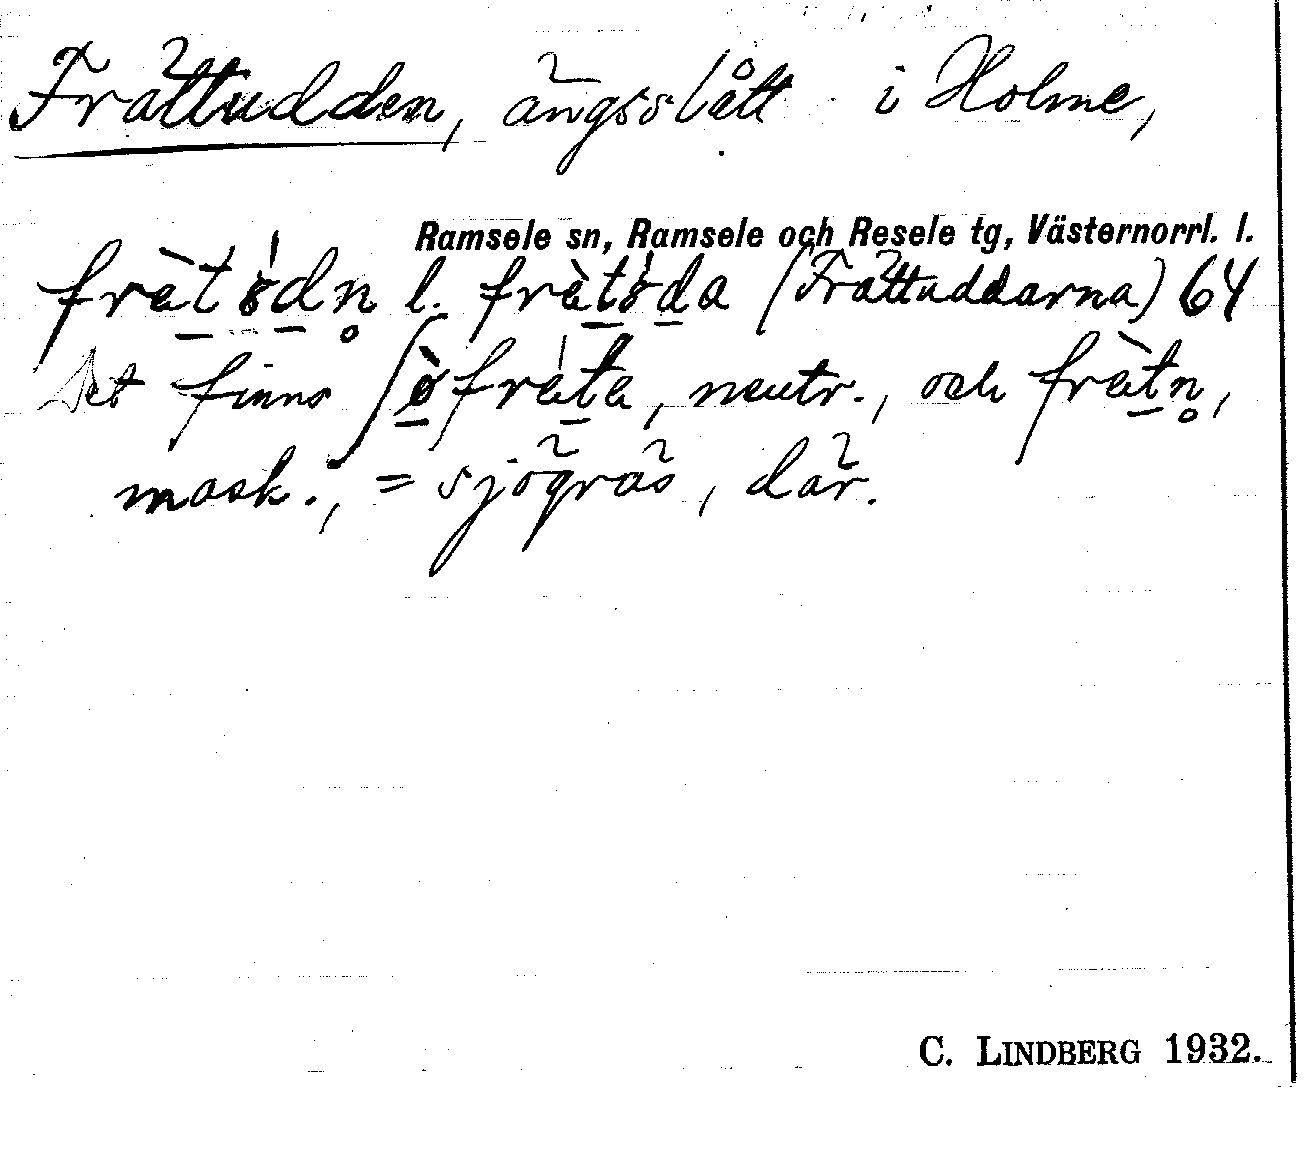 Frättudden, ängsslått i Holme,
Ramsele sn, Ramsele och Resele tg, Västernorrl. l.
l. (Frättuddarna) 64
Det finns neutr., och
mask., = sjögräs, där.
C. LINDBERG 1932.